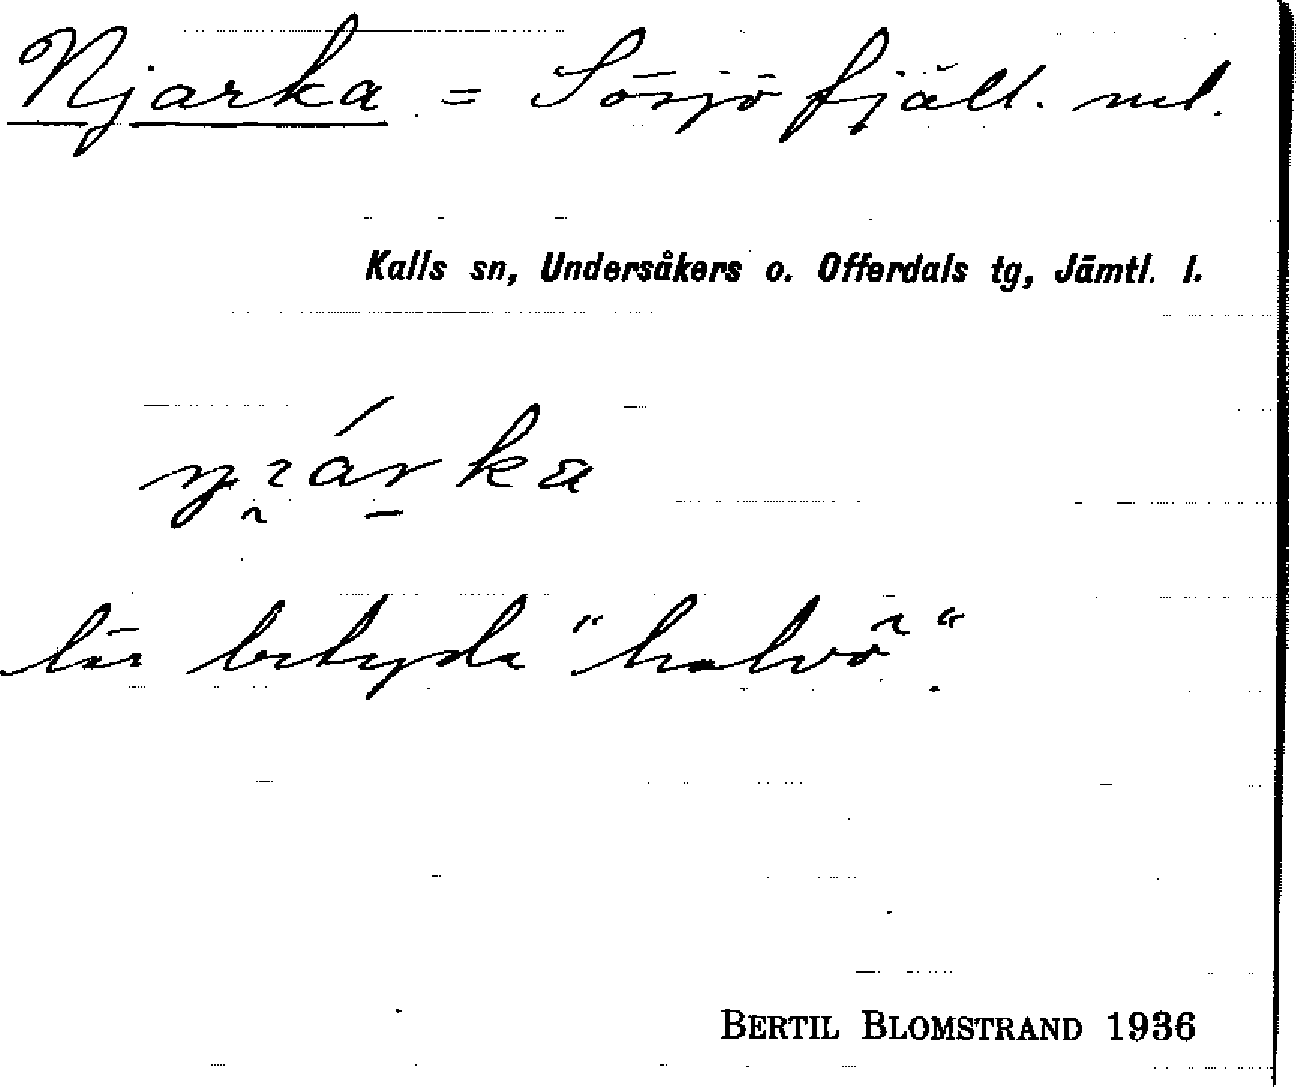 Njarka = Sösjöfjäll. nel.
Kalls sn, Undersåkers o. Offerdals tg, Jämtl. l.
lär betyda "halvö".
BERTIL BLOMSTRAND 1936